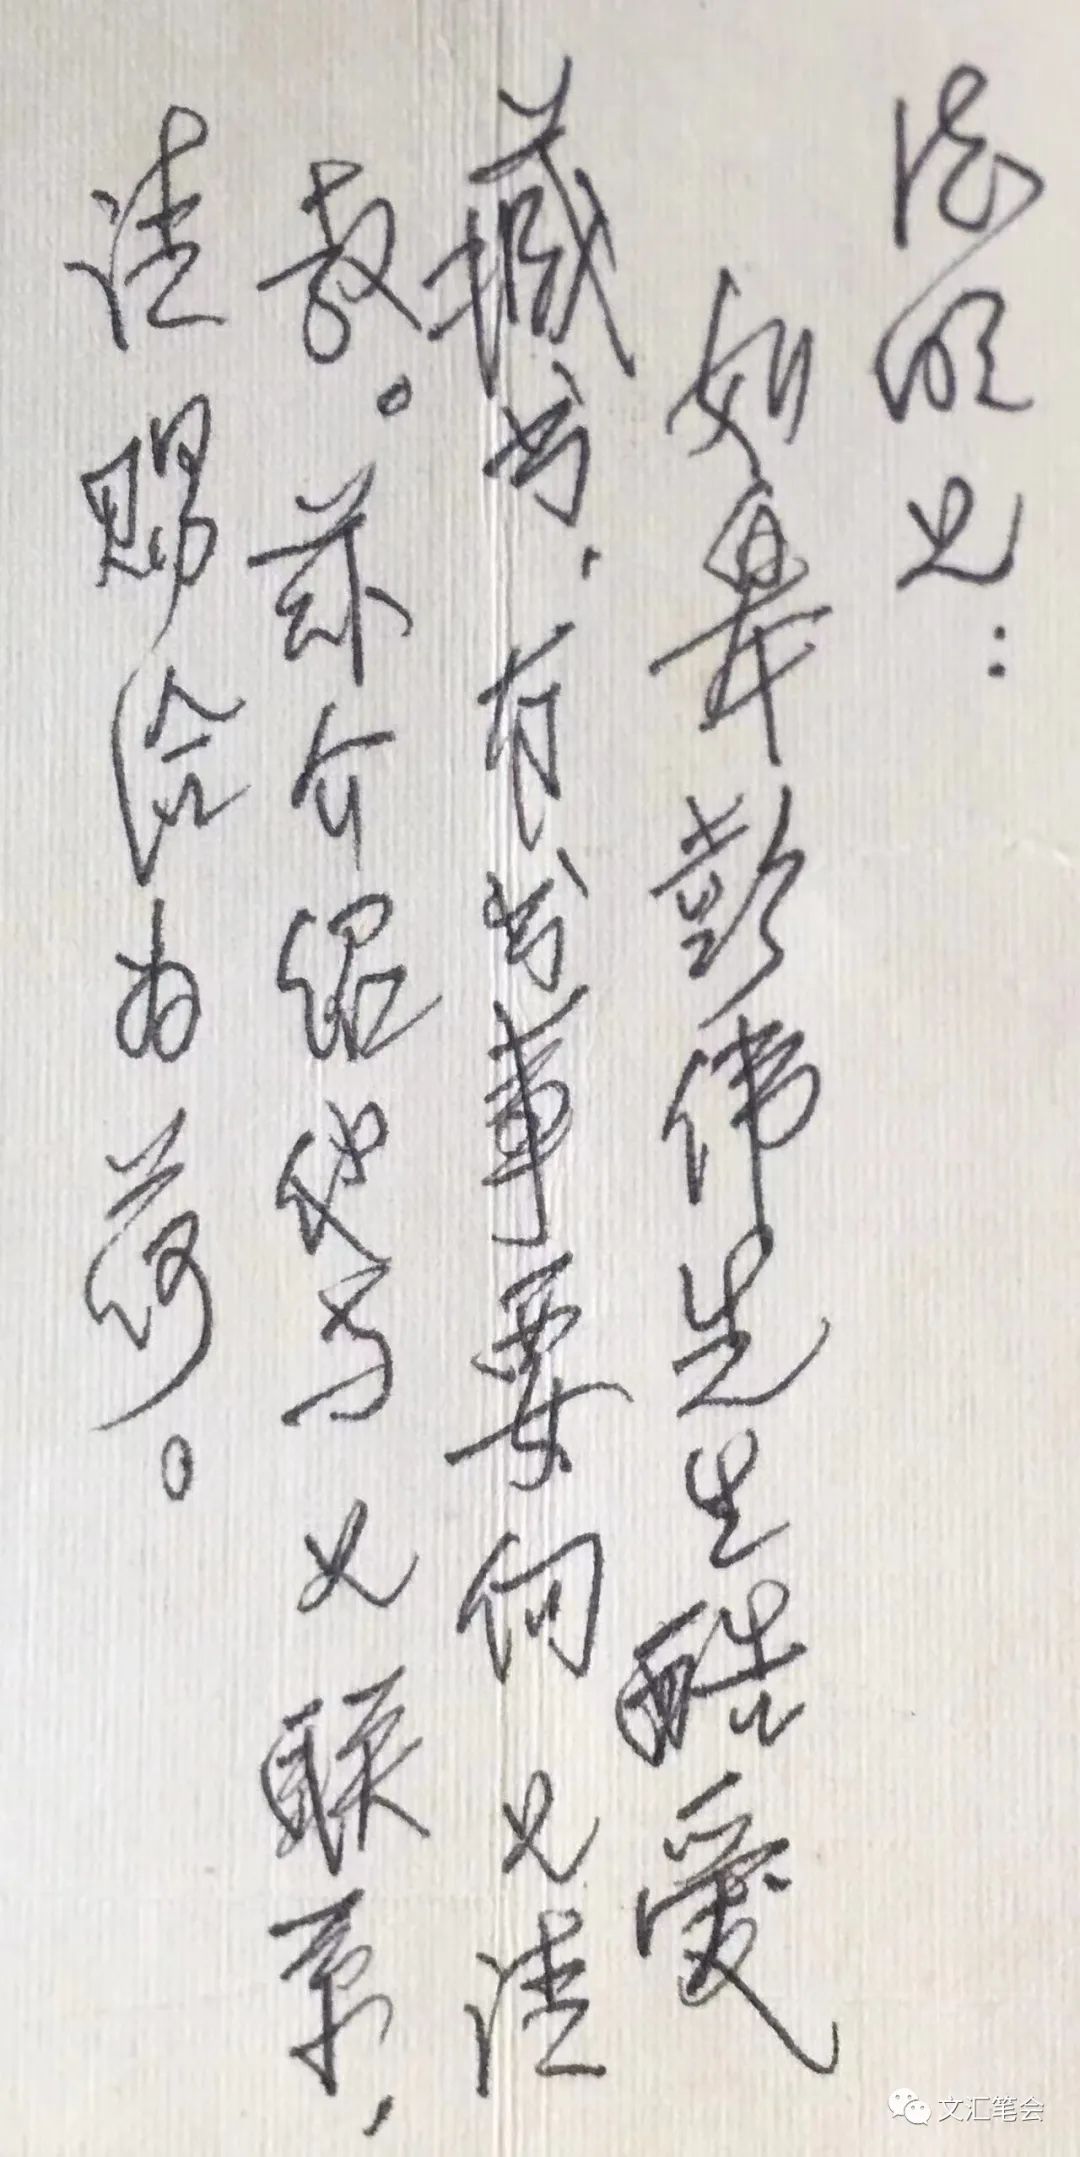 德明兄：
如皋彭伟先生酷爱
藏书，有书事要向兄请
教。兹介绍他与兄联系，
请赐洽为荷。
文汇笔会